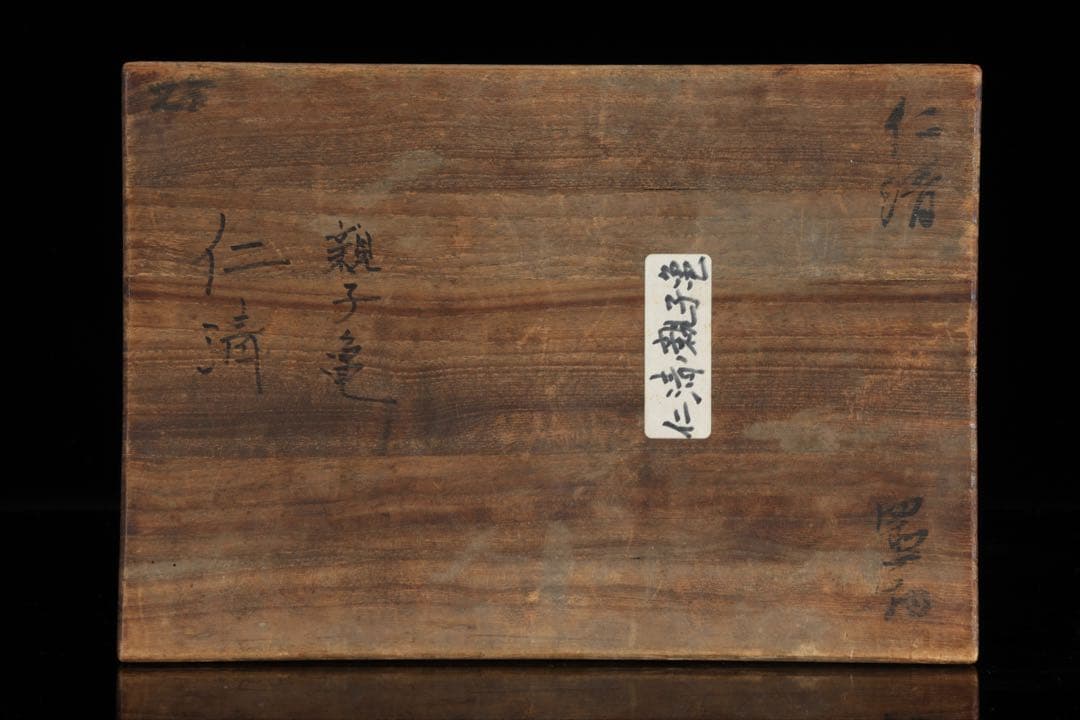 仁清
親子亀
仁清
仁清親子亀